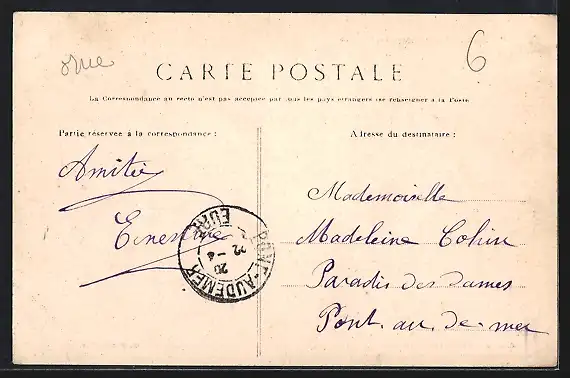 orne
6
CARTE POSTALE
La Correspondance au recto n'est pas acceptée par tous les pays étrangers (se renseigner à la Poste
Partie réservée à la correspondance :
Adresse du destinataire :
Amitié
Ernestine
PONT-AUDEMER
EURE
20
Mademoiselle
Madeleine Cohin
Paradis des dames
Pont. au. de. mer